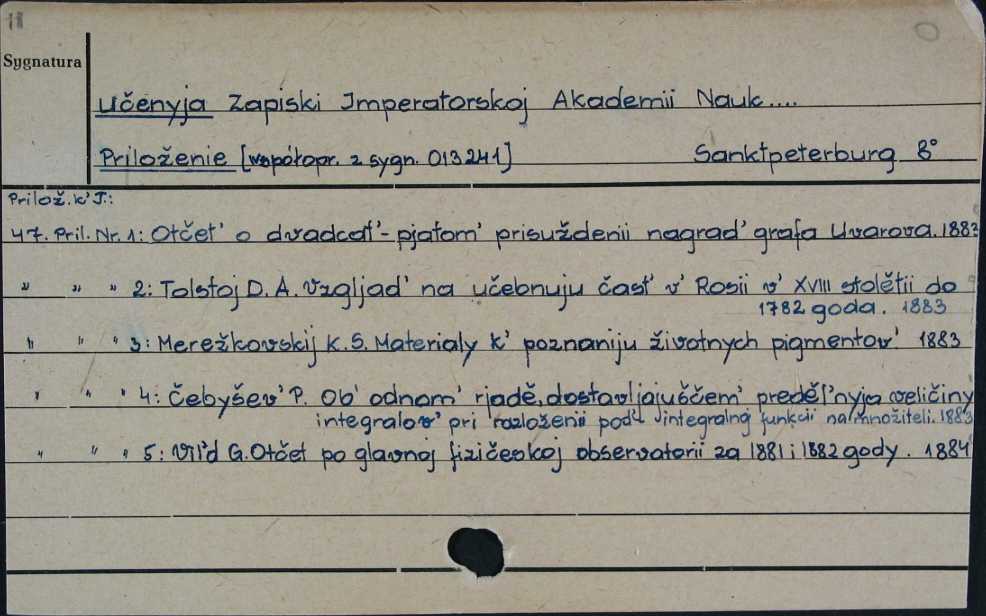 11
Sygnatura
Učenyja Zapiski Imperatorskoj Akademii Nauk....
Priloženie [współopr. z sygn. 013241] Sanktpeterburg 8°
Prilož. k' T.:
47. Pril. Nr. 1: Otčet' o dvadcat'-pjatom' prisuždenii nagrad' grafa Uvarova. 1883
" " " 2: Tolstoj D. A. Vzgljad' na učebnuju čast' v' Rosii v' XVIII stolětii do
1782 goda. 1883
" " " 3: Merežkovskij K. S. Materialy k' poznaniju životnych pigmentov' 1883
" " " 4: Čebyšev' P. Ob' odnom' rjadě, dostavljajuščem' preděl'nyja veličiny
integralov' pri razloženii pod' integralnoj funkcii na množiteli. 1883
" " " 5: Vil'd G. Otčet po glavnoj fizičeskoj observatorii za 1881 i 1882 gody. 1884